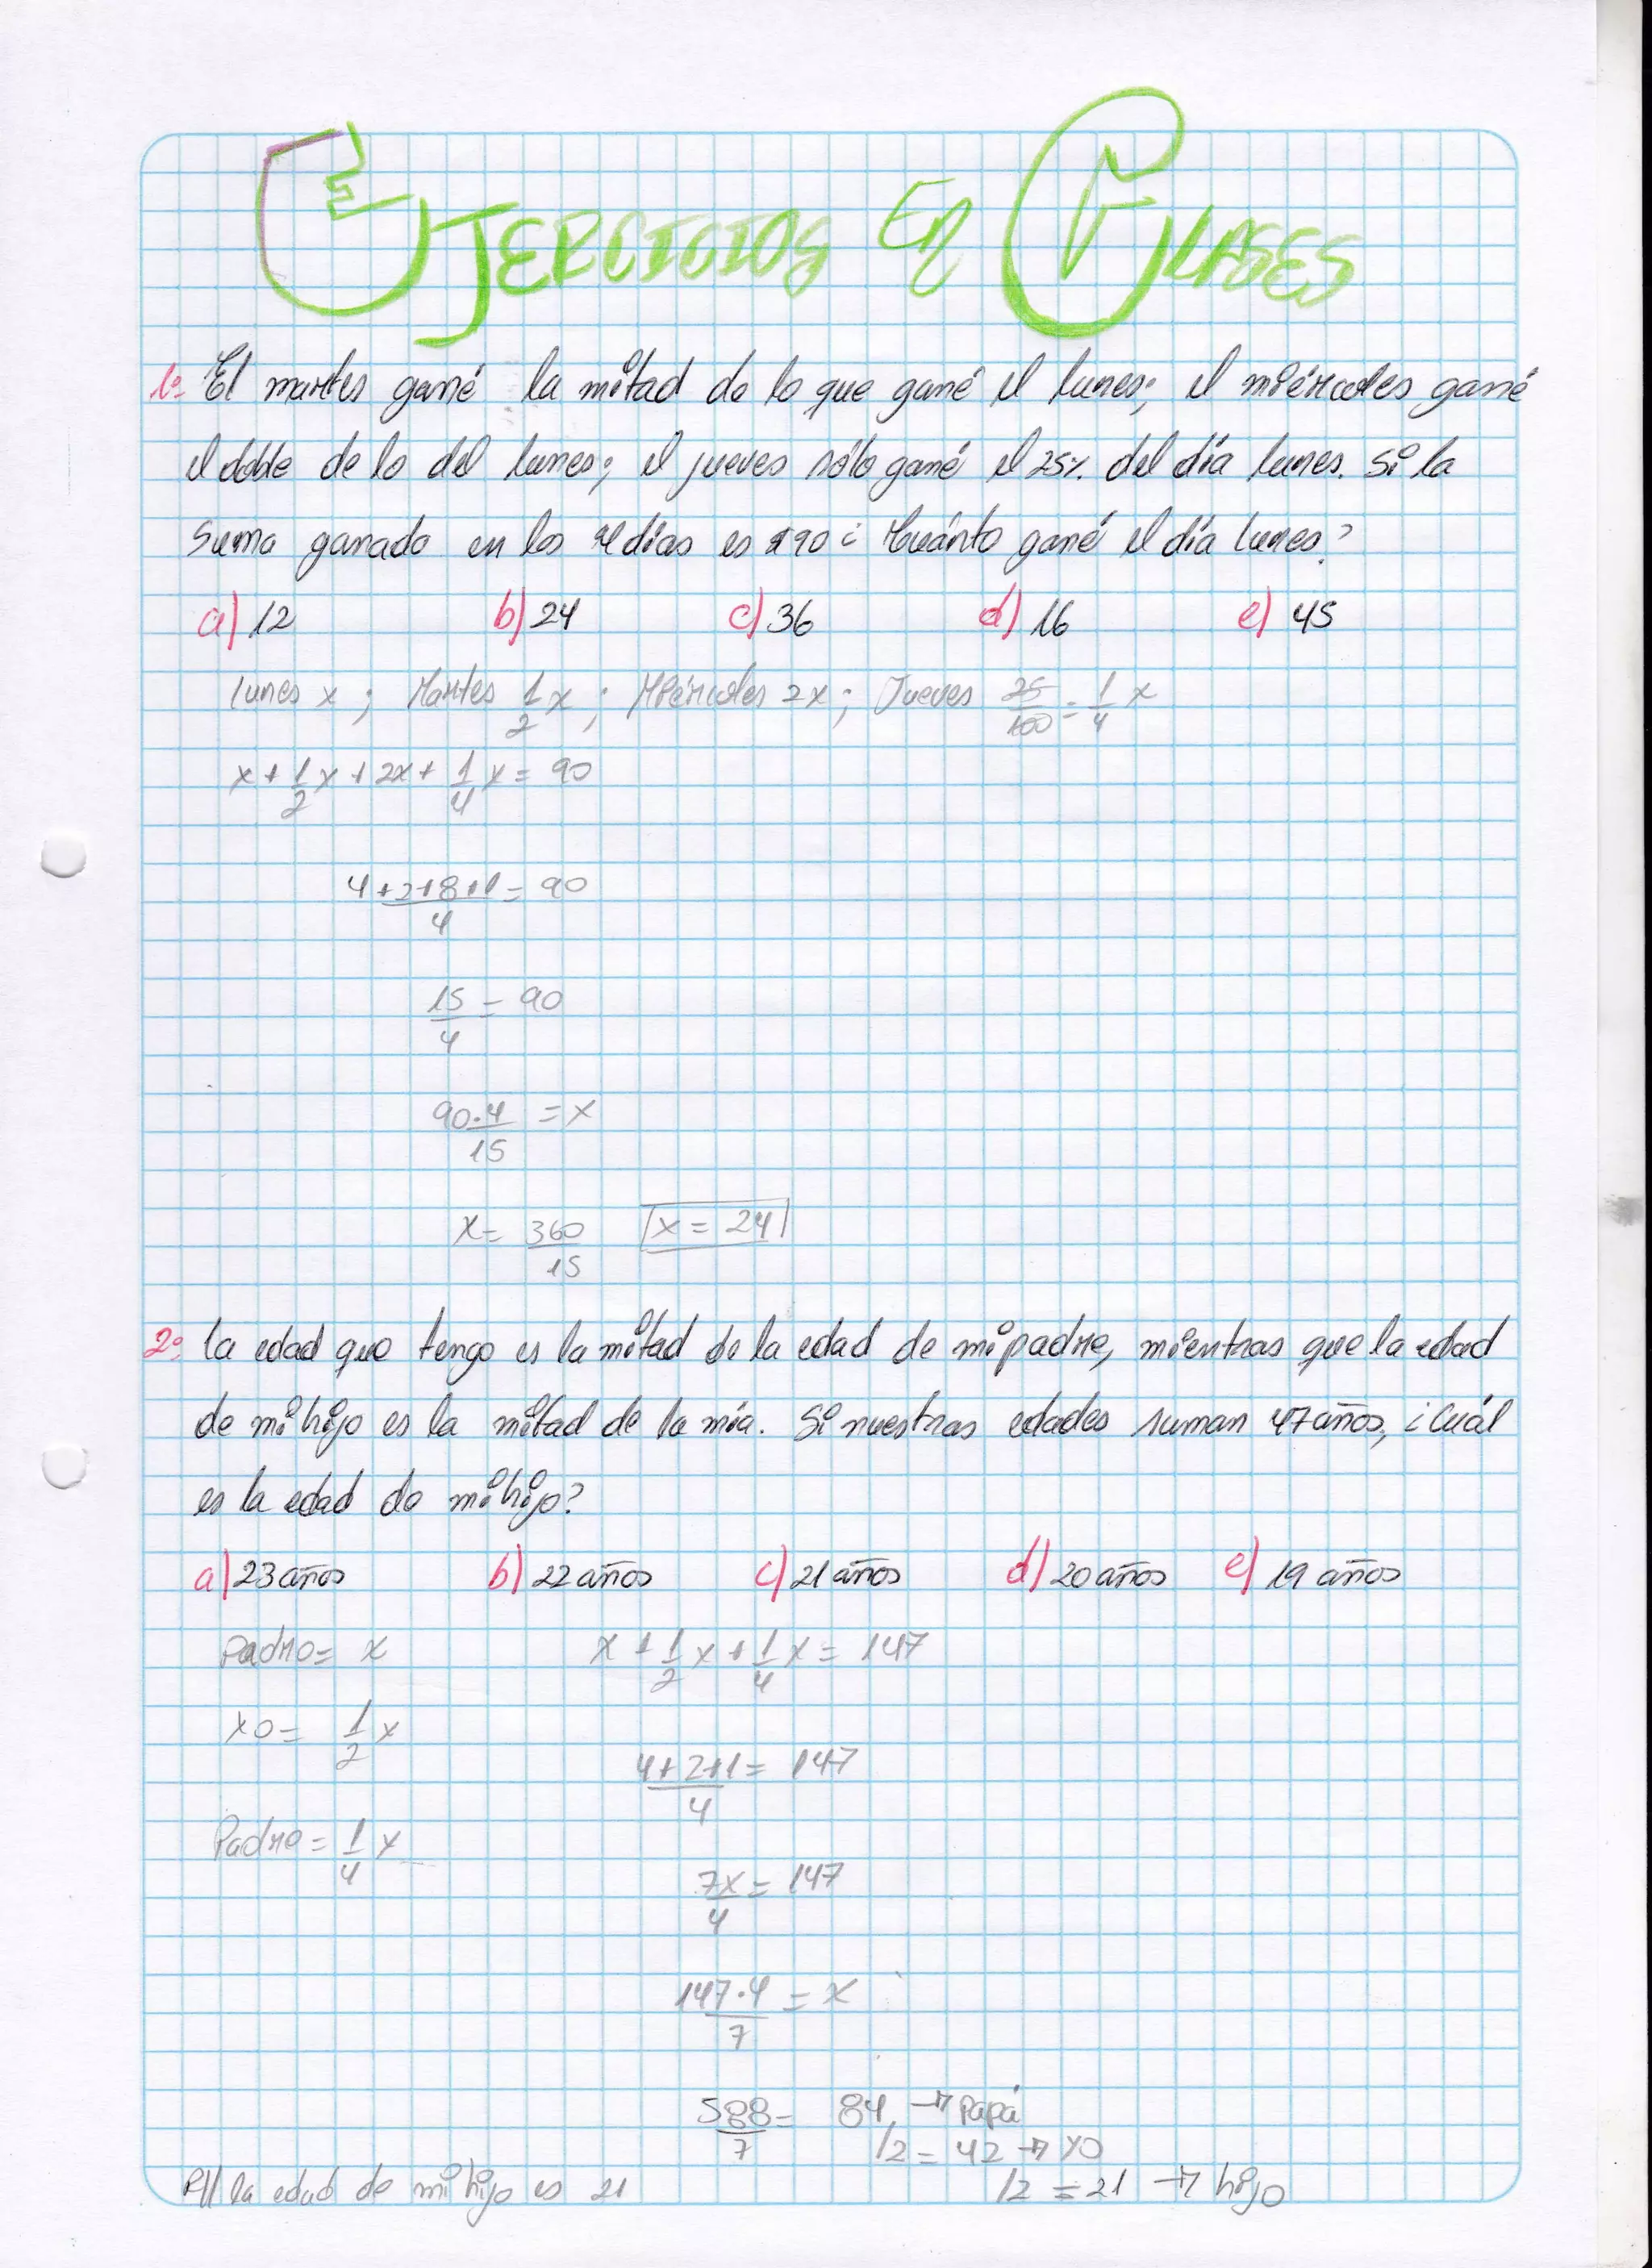 EJERCICIOS EN CLASES
1º El martes gané la mitad de lo que gané el lunes; el miércoles gané
el doble de lo del lunes; el jueves sólo gané el 25% del día lunes. Si la
suma ganado en los 4 días es $90 ¿ Cuánto gané el día lunes?
a) 12 b) 24 c) 36 d) 16 e) 45
lunes x ; Martes 1/2 x ; Miércoles 2x ; Jueves 25/100 = 1/4 x
x + 1/2 x + 2x + 1/4 x = 90
4+2+8+1/4 = 90
15/4 = 90
90·4/15 = x
x = 360/15 x = 24
2º la edad que tengo es la mitad de la edad de mi padre, mientras que la edad
de mi hijo es la mitad de la mía. Si nuestras edades suman 47 años, ¿ Cuál
es la edad de mi hijo?
a) 23 años b) 22 años c) 21 años d) 20 años e) 19 años
Padre = x x + 1/2 x + 1/4 x = 147
yo = 1/2 x
4+2+1/4 = 147
Padre = 1/4 x
7x/4 = 147
147·4/7 = x
588/7 = 84 → Papá
/2 = 42 → yo
P// la edad de mi hijo es 21 /2 = 21 → hijo